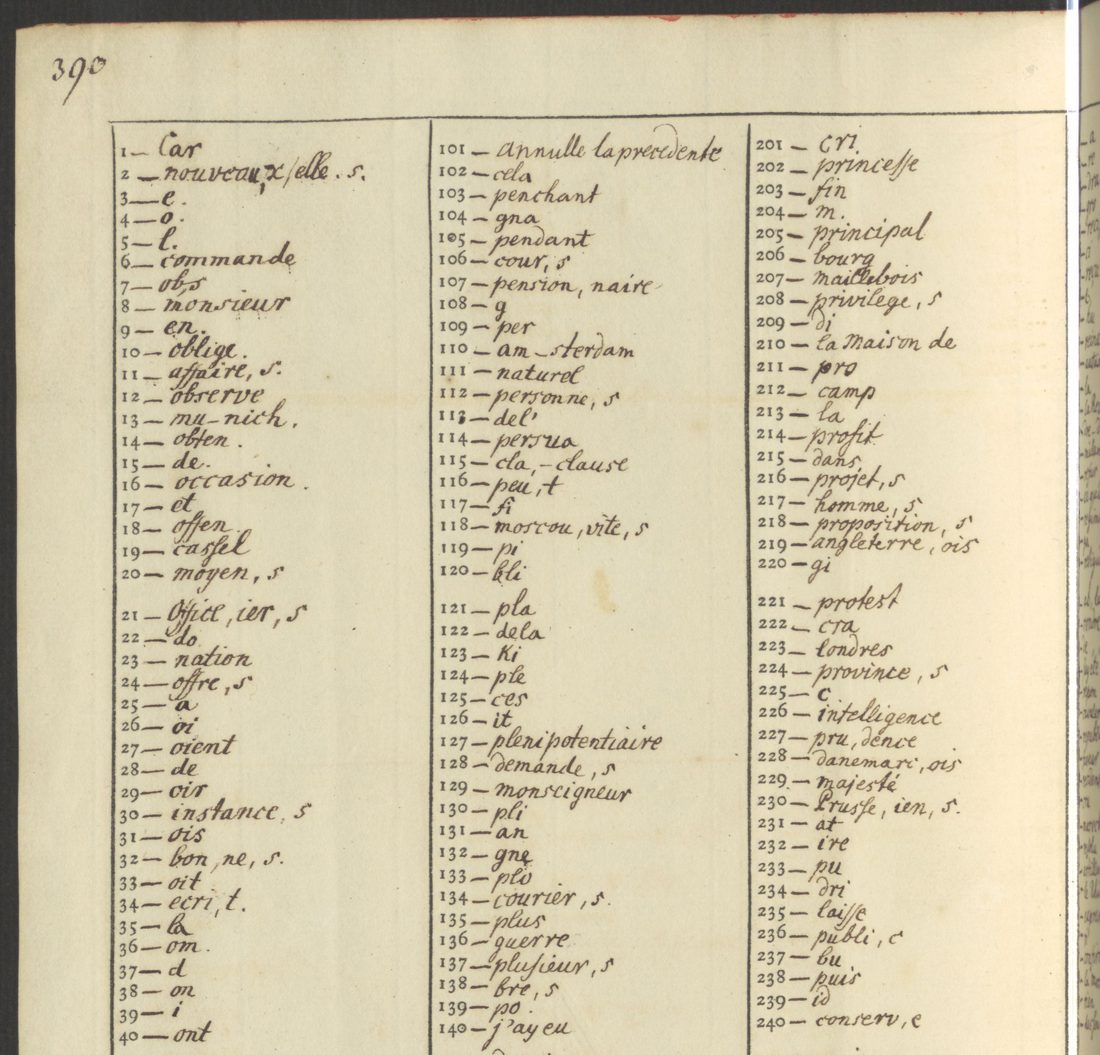 390
1 — Car
2 — nouveau, x / elle. s.
3 — e.
4 — o.
5 — l.
6 — commande
7 — obs
8 — monsieur
9 — en.
10 — oblige.
11 — affaire, s.
12 — observe
13 — mu-nich.
14 — obten.
15 — de.
16 — occasion.
17 — et
18 — offen
19 — cassel
20 — moyen, s
21 — office, ier, s
22 — do
23 — nation
24 — offre, s
25 — a
26 — oi
27 — oient
28 — de
29 — oir
30 — instance, s
31 — ois
32 — bon, ne, s.
33 — oit
34 — ecri, t.
35 — la
36 — om.
37 — d
38 — on
39 — i
40 — ont
101 — annulle la precedente
102 — cela
103 — penchant
104 — gna
105 — pendant
106 — cour, s
107 — pension, naire
108 — g
109 — per
110 — am-sterdam
111 — naturel
112 — personne, s
113 — del'
114 — persua
115 — cla, - clause
116 — peu, t
117 — fi
118 — moscou, vite, s
119 — pi
120 — bli
121 — pla
122 — dela
123 — Ki
124 — ple
125 — ces
126 — it
127 — plenipotentiaire
128 — demande, s
129 — monseigneur
130 — pli
131 — an
132 — gne
133 — plo
134 — courier, s.
135 — plus
136 — guerre
137 — plusieur, s
138 — bre, s
139 — po.
140 — j'ay eu
201 — cri
202 — princesse
203 — fin
204 — m.
205 — principal
206 — bourg
207 — maillebois
208 — privilege, s
209 — di
210 — la Maison de
211 — pro
212 — camp
213 — la
214 — profit
215 — dans
216 — projet, s
217 — homme, s.
218 — proposition, s
219 — angleterre, ois
220 — gi
221 — protest
222 — cra
223 — londres
224 — province, s
225 — c
226 — intelligence
227 — pru, dence
228 — danemarc, ois
229 — majesté
230 — Prusse, ien, s.
231 — at
232 — ire
233 — pu
234 — dri
235 — laisse
236 — publi, c
237 — bu
238 — puis
239 — id
240 — conserv, e